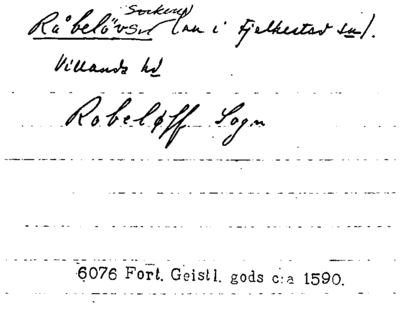 Socken
Råbelövs (nu i Fjelkestad sn).
Villands hd
Robeløff Sogn
6076 Fort. Geistl. gods c:a 1590.